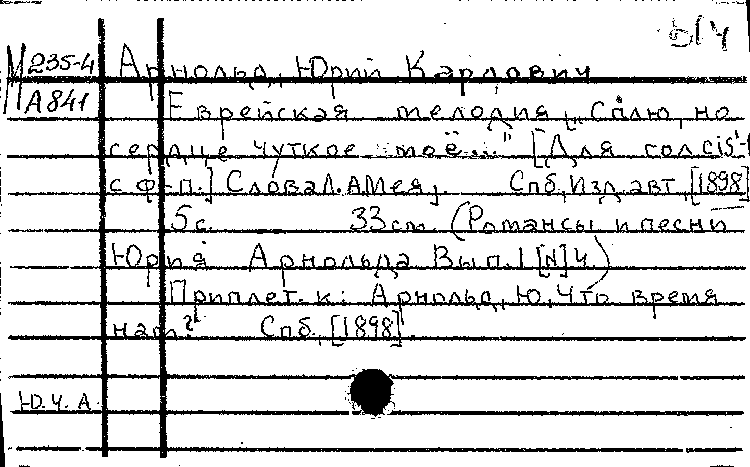 Б/Ч
М 235-4 Арнольд, Юрий Карлович
А 841 Еврейская мелодия „Сплю, но
сердце чуткое моё..." [Для гол. cis¹-
с ф-п.] Слова Л.А. Мея. Спб, Изд. авт., [1898]
5 с. 33 см. (Романсы и песни
Юрия Арнольда Вып. I [N] 4)
Приплет. к: Арнольд, Ю. Что время
нам? Спб, [1898].
Ю. Ч. А